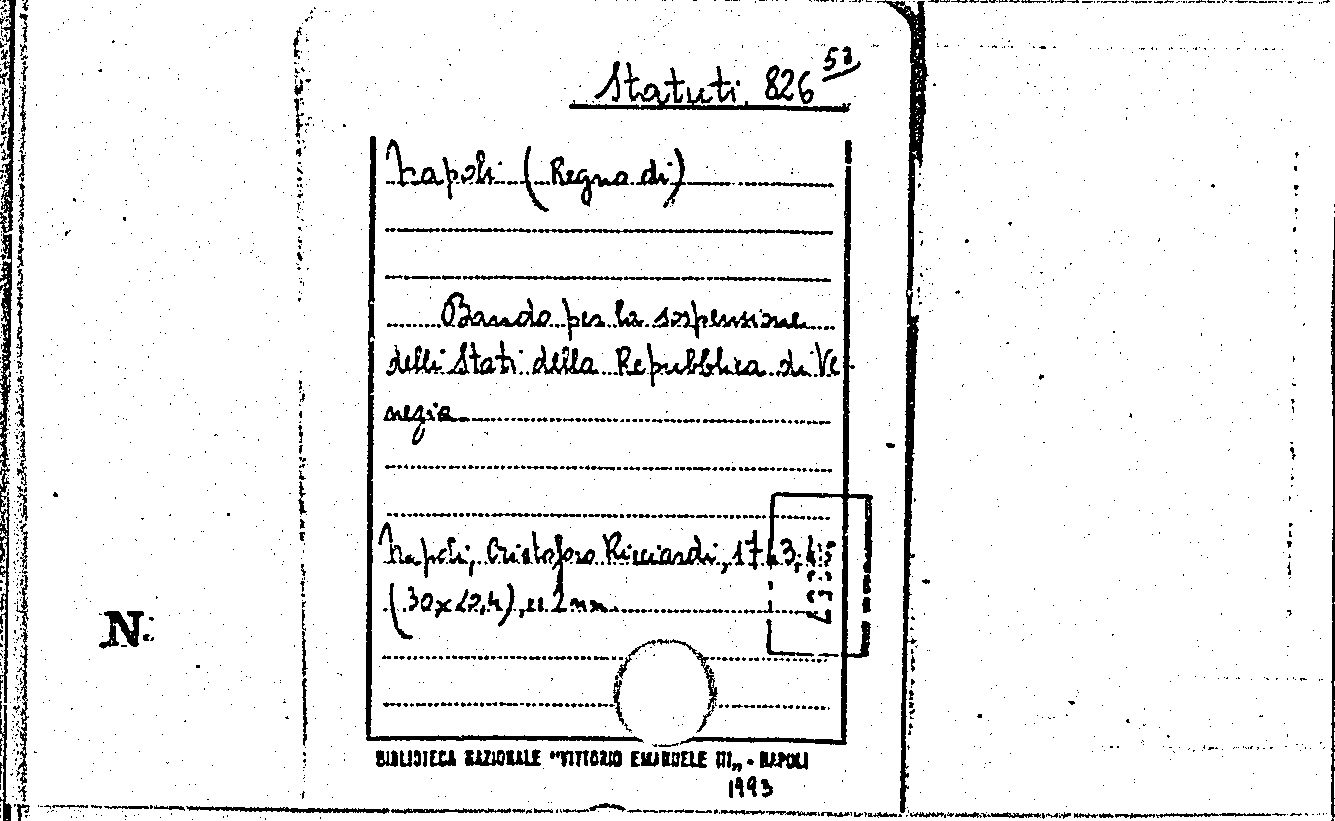 Statuti. 826 53
Napoli (Regno di)
Bando per la sospensione
delli Stati della Repubblica di Ve
nezia
Napoli, Cristoforo Ricciardi,
(30x
N:
BIBLIOTECA NAZIONALE "VITTORIO EMANUELE III„ - NAPOLI
1993